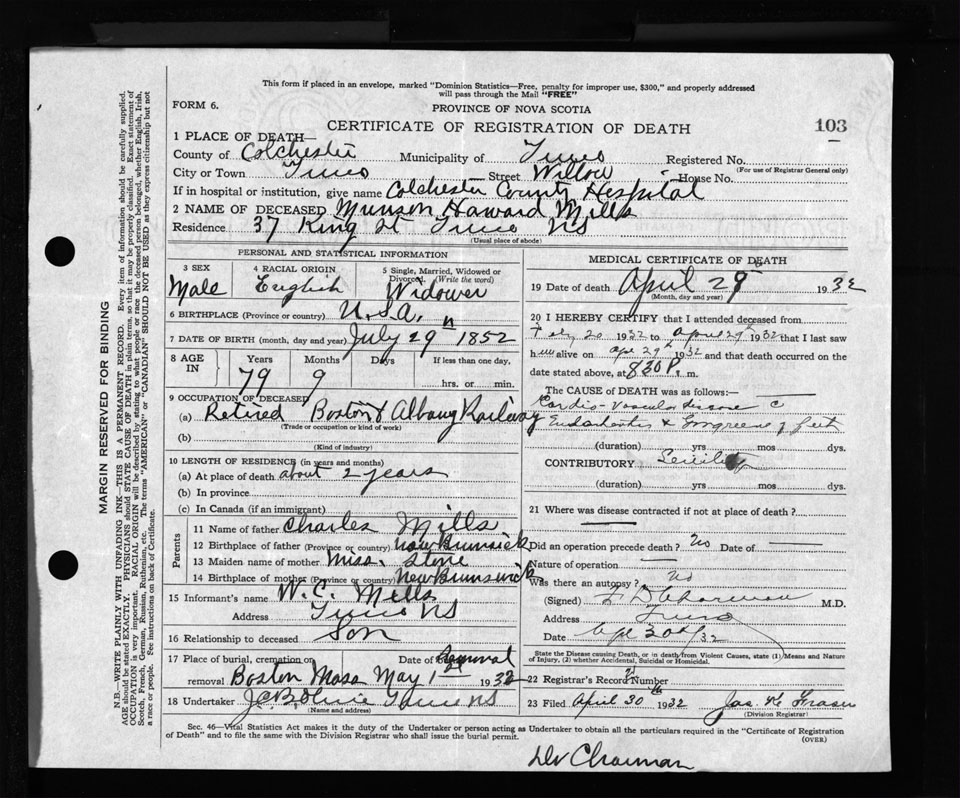 This form if placed in an envelope, marked "Dominion Statistics—Free, penalty for improper use, $300," and properly addressed
will pass through the Mail "FREE"
FORM 6.
PROVINCE OF NOVA SCOTIA
CERTIFICATE OF REGISTRATION OF DEATH
103
1 PLACE OF DEATH—
County of Colchester Municipality of Truro Registered No.
(For use of Registrar General only)
City or Town Truro Street Willow House No.
If in hospital or institution, give name Colchester County Hospital
2 NAME OF DECEASED Munson Howard Mills
Residence 37 King St Truro NS
(Usual place of abode)
PERSONAL AND STATISTICAL INFORMATION
3 SEX Male
4 RACIAL ORIGIN English
5 Single, Married, Widowed or
Divorced. (Write the word)
Widower
6 BIRTHPLACE (Province or country) U.S.A.
7 DATE OF BIRTH (month, day and year) July 29 1852
8 AGE IN Years Months Days If less than one day,
79 9 hrs. or min.
9 OCCUPATION OF DECEASED
(a) Retired Boston & Albany Railway
(Trade or occupation or kind of work)
(b)
(Kind of industry)
10 LENGTH OF RESIDENCE (in years and months)
(a) At place of death about 2 years
(b) In province
(c) In Canada (if an immigrant)
Parents
11 Name of father Charles Mills
12 Birthplace of father (Province or country) New Brunswick
13 Maiden name of mother Miss. Stone
14 Birthplace of mother (Province or country) New Brunswick
15 Informant's name W. C. Mills
Address Truro NS
16 Relationship to deceased Son
17 Place of burial, cremation or Date of Removal
removal Boston Mass May 1st 1932
18 Undertaker Truro NS
(Name and address)
MEDICAL CERTIFICATE OF DEATH
19 Date of death April 29 1932
(Month, day and year)
20 I HEREBY CERTIFY that I attended deceased from
Feby 20 1932 to April 29th 1932 that I last saw
him alive on Apr 29th 1932 and that death occurred on the
date stated above, at 8 30 P. m.
The CAUSE OF DEATH was as follows:
Cardio-Vascular disease c
Endarteritis & Gangrene of feet
(duration) yrs mos dys.
CONTRIBUTORY Senility
(duration) yrs mos dys.
21 Where was disease contracted if not at place of death?
Did an operation precede death? No Date of
Nature of operation
Was there an autopsy? No
(Signed) M.D.
Address Truro
Date Apl 30th /32
State the Disease causing Death, or in death from Violent Causes, state (1) Means and
Nature of Injury, (2) whether Accidental, Suicidal or Homicidal.
22 Registrar's Record Number
23 Filed April 30th 1932 Jas. Fraser
(Division Registrar)
Sec. 46—Vital Statistics Act makes it the duty of the Undertaker or person acting as Undertaker to obtain all the particulars required in the "Certificate of Registration
of Death" and to file the same with the Division Registrar who shall issue the burial permit.
(OVER)
Dr Charman
MARGIN RESERVED FOR BINDING
N.B.—WRITE PLAINLY WITH UNFADING INK—THIS IS A PERMANENT RECORD. Every item of information should be carefully supplied.
AGE should be stated EXACTLY. PHYSICIANS should STATE CAUSE OF DEATH in plain terms, so that it may be properly classified. Exact statement of
OCCUPATION is very important. RACIAL ORIGIN will be described by stating to what people or race the deceased person belonged, whether English, Irish,
Scotch, French, German, Russian, Ruthenian, etc. The terms "AMERICAN" or "CANADIAN" SHOULD NOT BE USED as they express citizenship but not
a race or people. See instructions on back of Certificate.